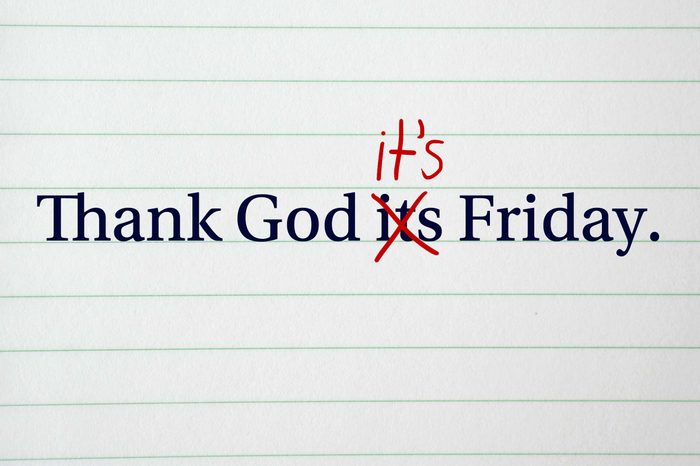 it's
Thank God its Friday.